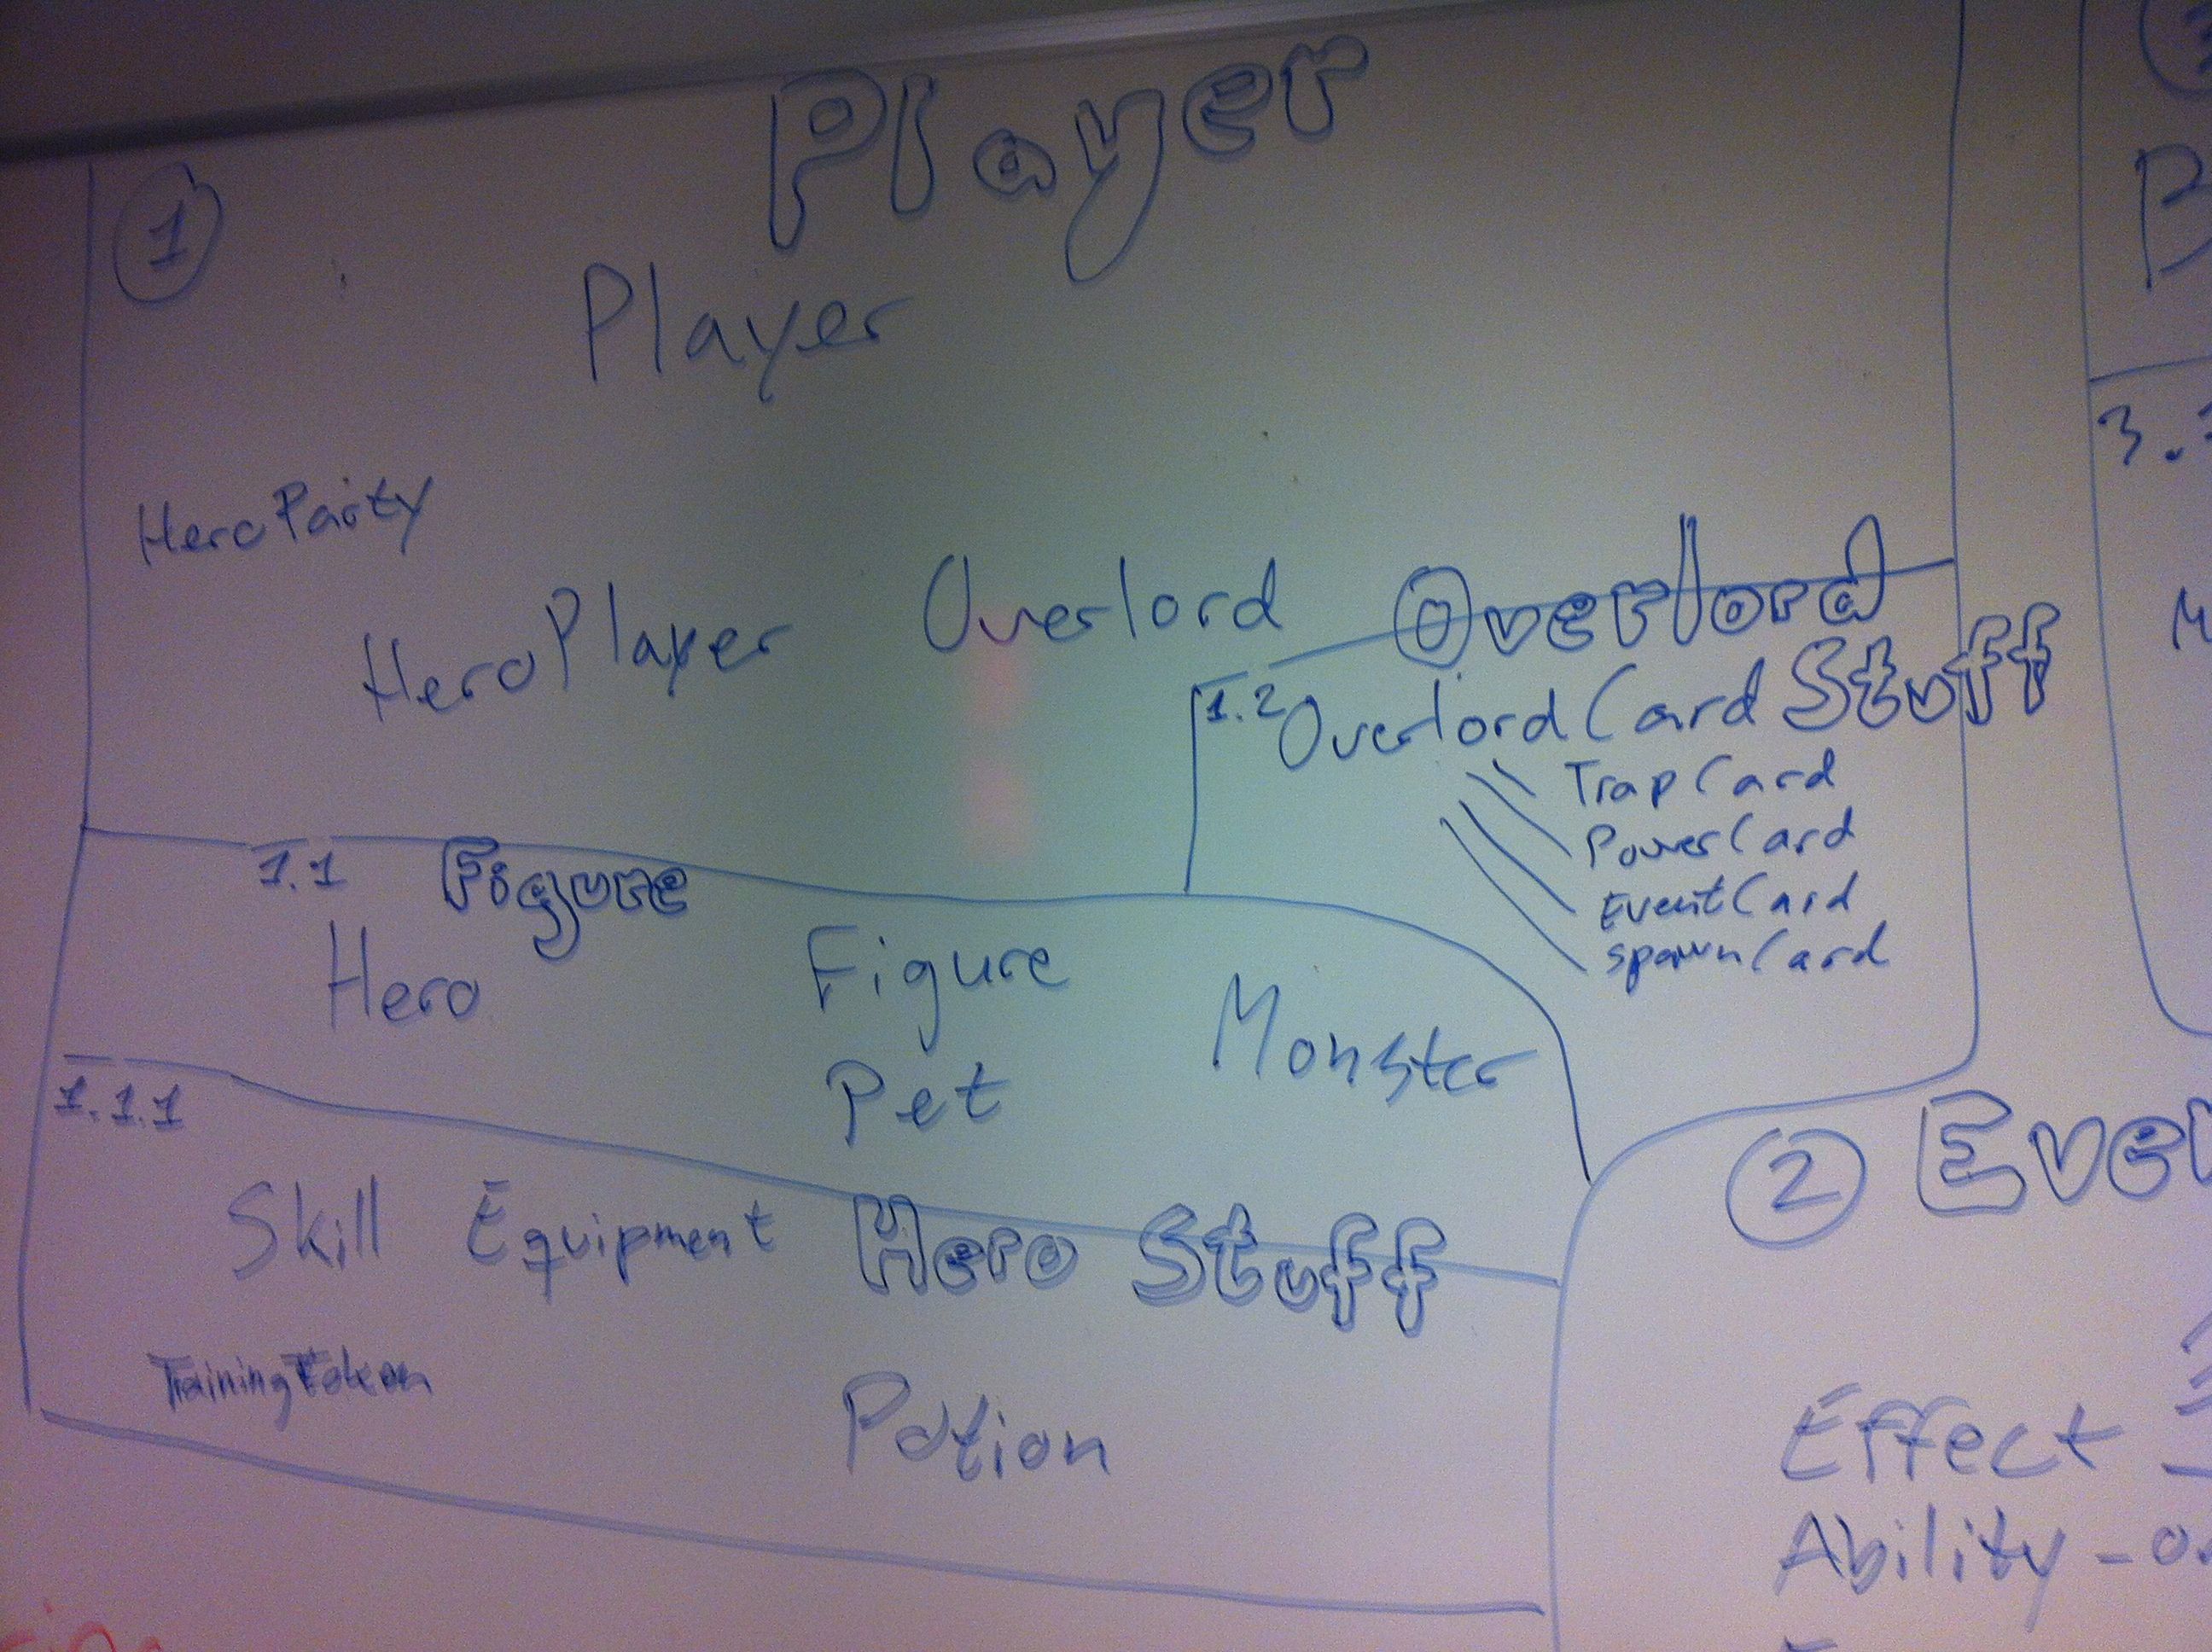 1
Player
Player
HeroParty
HeroPlayer
Overlord
Overlord
Stuff
1.2
OverlordCard
TrapCard
PowerCard
EventCard
SpawnCard
1.1
Figure
Hero
Figure
Monster
Pet
1.1.1
Skill
Equipment
Hero Stuff
TrainingToken
Potion
2
Effect
Ability